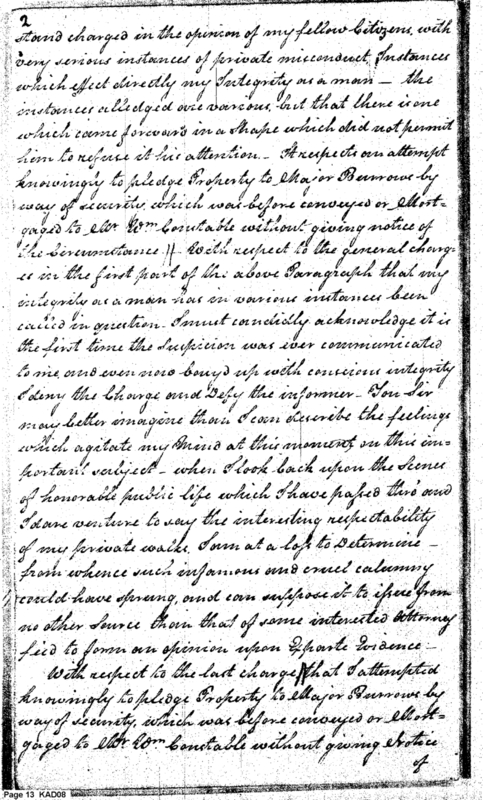 2
stand charged in the opinion of my fellow Citizens, with
very serious instances of private misconduct, Instances
which effect directly my Integrity as a man — the
instances alledged are various, but that there is one
which came forward in a Shape which did not permit
him to refuse it his attention — It respects an attempt
knowingly to pledge Property to Major Burrows by
way of security, which was before conveyed or Mort-
gaged to Mr. Wm Constable without giving notice of
the Circumstance // With respect to the general charg-
es in the first part of the above Paragraph that my
integrity as a man has in various instances been
called in question — I must candidly acknowledge it is
the first time the Suspicion was ever communicated
to me, and even now bouy'd up with conscious integrity
I deny the Charge and Defy the informer — You Sir
may better imagine than I can describe the feelings
which agitate my Mind at this moment, on this im-
portant subject — when I look back upon the Scenes
of honorable public life which I have passed thro' and
I dare venture to say the interesting respectability
of my private walks, I am at a loss to Determine
from whence such infamous and cruel calumny
could have sprung, and can suppose it to issue from
no other Source than that of some interested Attorney
feed to form an opinion upon Exparte Evidence —
With respect to the last charge, // that I attempted
knowingly to pledge Property to Major Burrows by
way of security, which was before conveyed or Mort-
gaged to Mr. Wm Constable without giving Notice
of
Page 13 KAD08